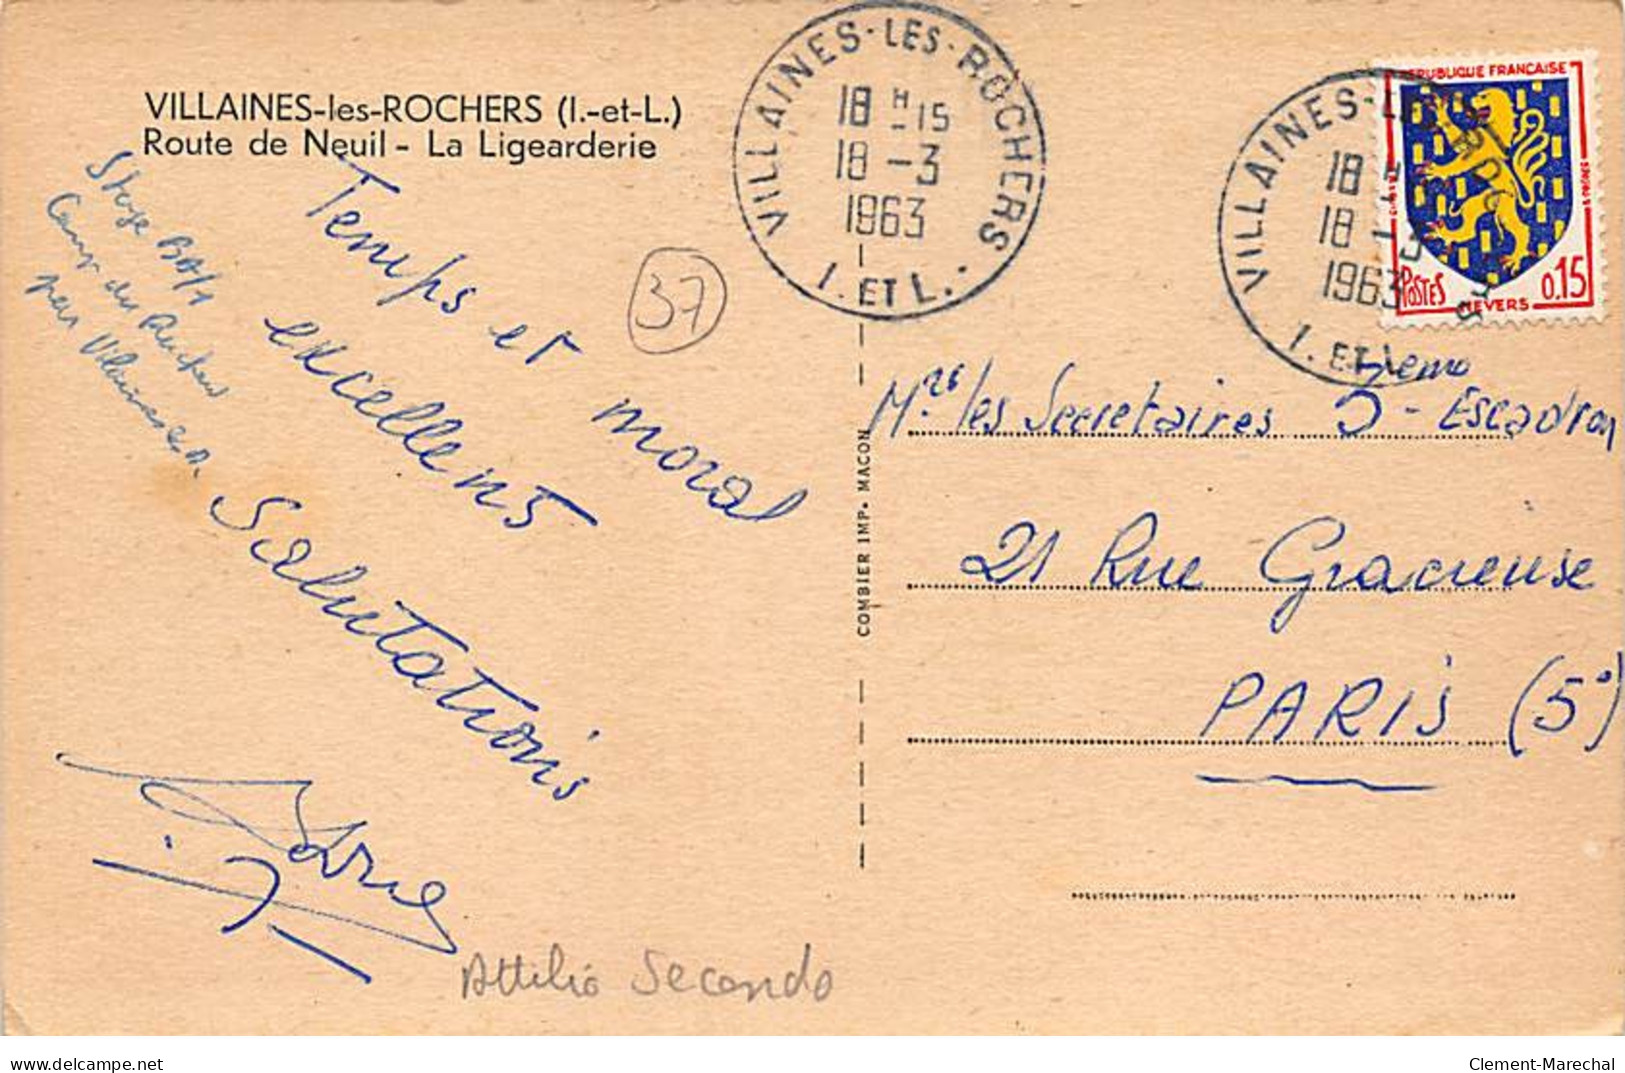 VILLAINES-les-ROCHERS (I.-et-L.)
Route de Neuil - La Ligearderie
Stage
Camp du
par Villaines
Temps et moral
excellents
Salutations
37
Attilio Secondo
VILLAINES-LES-ROCHERS
18 H -15
18 -3
1963
I. ET L.
COMBIER IMP. MACON
VILLAINES-LES-ROCHERS
18 H
18 -3
1963
I. ET L.
REPUBLIQUE FRANÇAISE
POSTES
NEVERS
0.15
les Secretaires
Escadron
21 Rue Gracieuse
PARIS (5°)
delcampe.net
Clement-Marechal